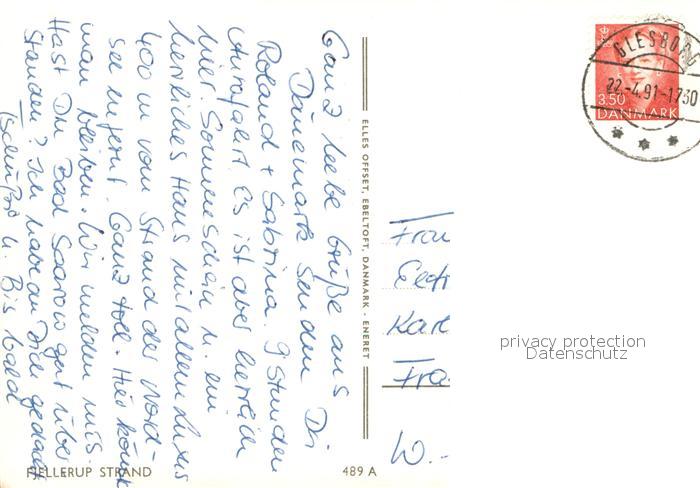 Ganz liebe Grüße aus
Dänemark senden Dir
Roland + Sabrina. 9 Stunden
Autofahrt. Es ist aber herrlich
hier. Sonnenschein u. ein
herrliches Haus mit allem Luxus
400 m vom Strand der Nord-
see entfernt. Ganz toll. Hier könnte
man bleiben. Wir melden uns.
Hast Du Bad Saarow gut über
standen? Ich habe an Dich gedacht
Tschüß u. Bis bald
FJELLERUP STRAND
489 A
ELLES OFFSET, EBELTOFT, DANMARK - ENERET
GLESBORG
22.-4.91-1730
3.50
DANMARK
Frau
Kar
Fra
W.-
privacy protection
Datenschutz